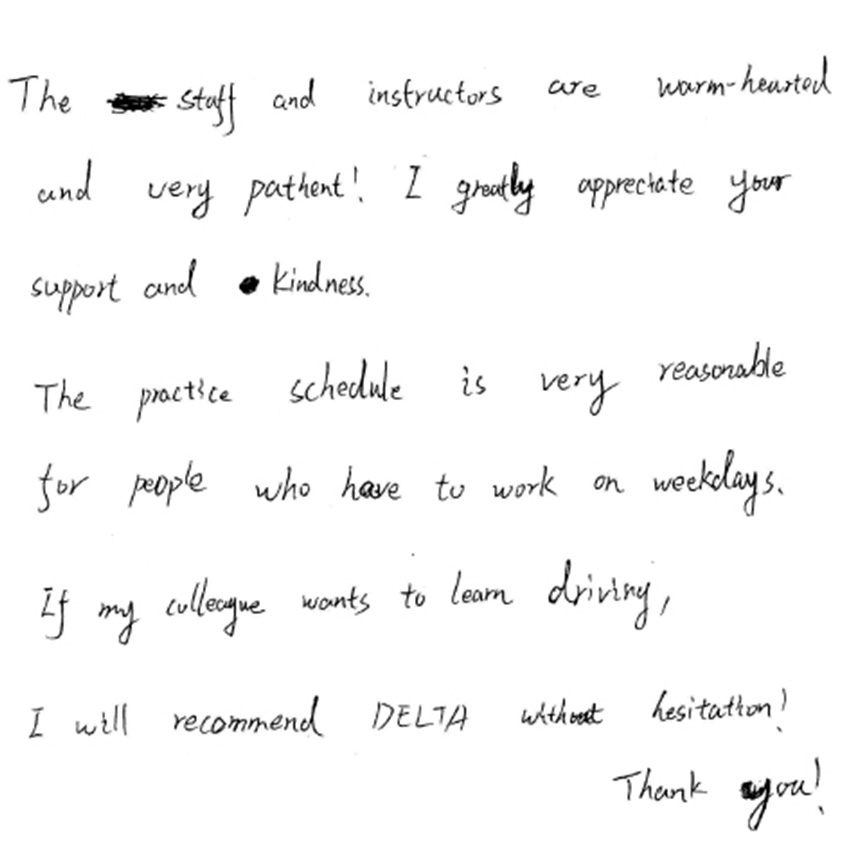 The staff and instructors are warm-hearted
and very patient! I greatly appreciate your
support and kindness.
The practice schedule is very reasonable
for people who have to work on weekdays.
If my colleague wants to learn driving,
I will recommend DELTA without hesitation!
Thank you!